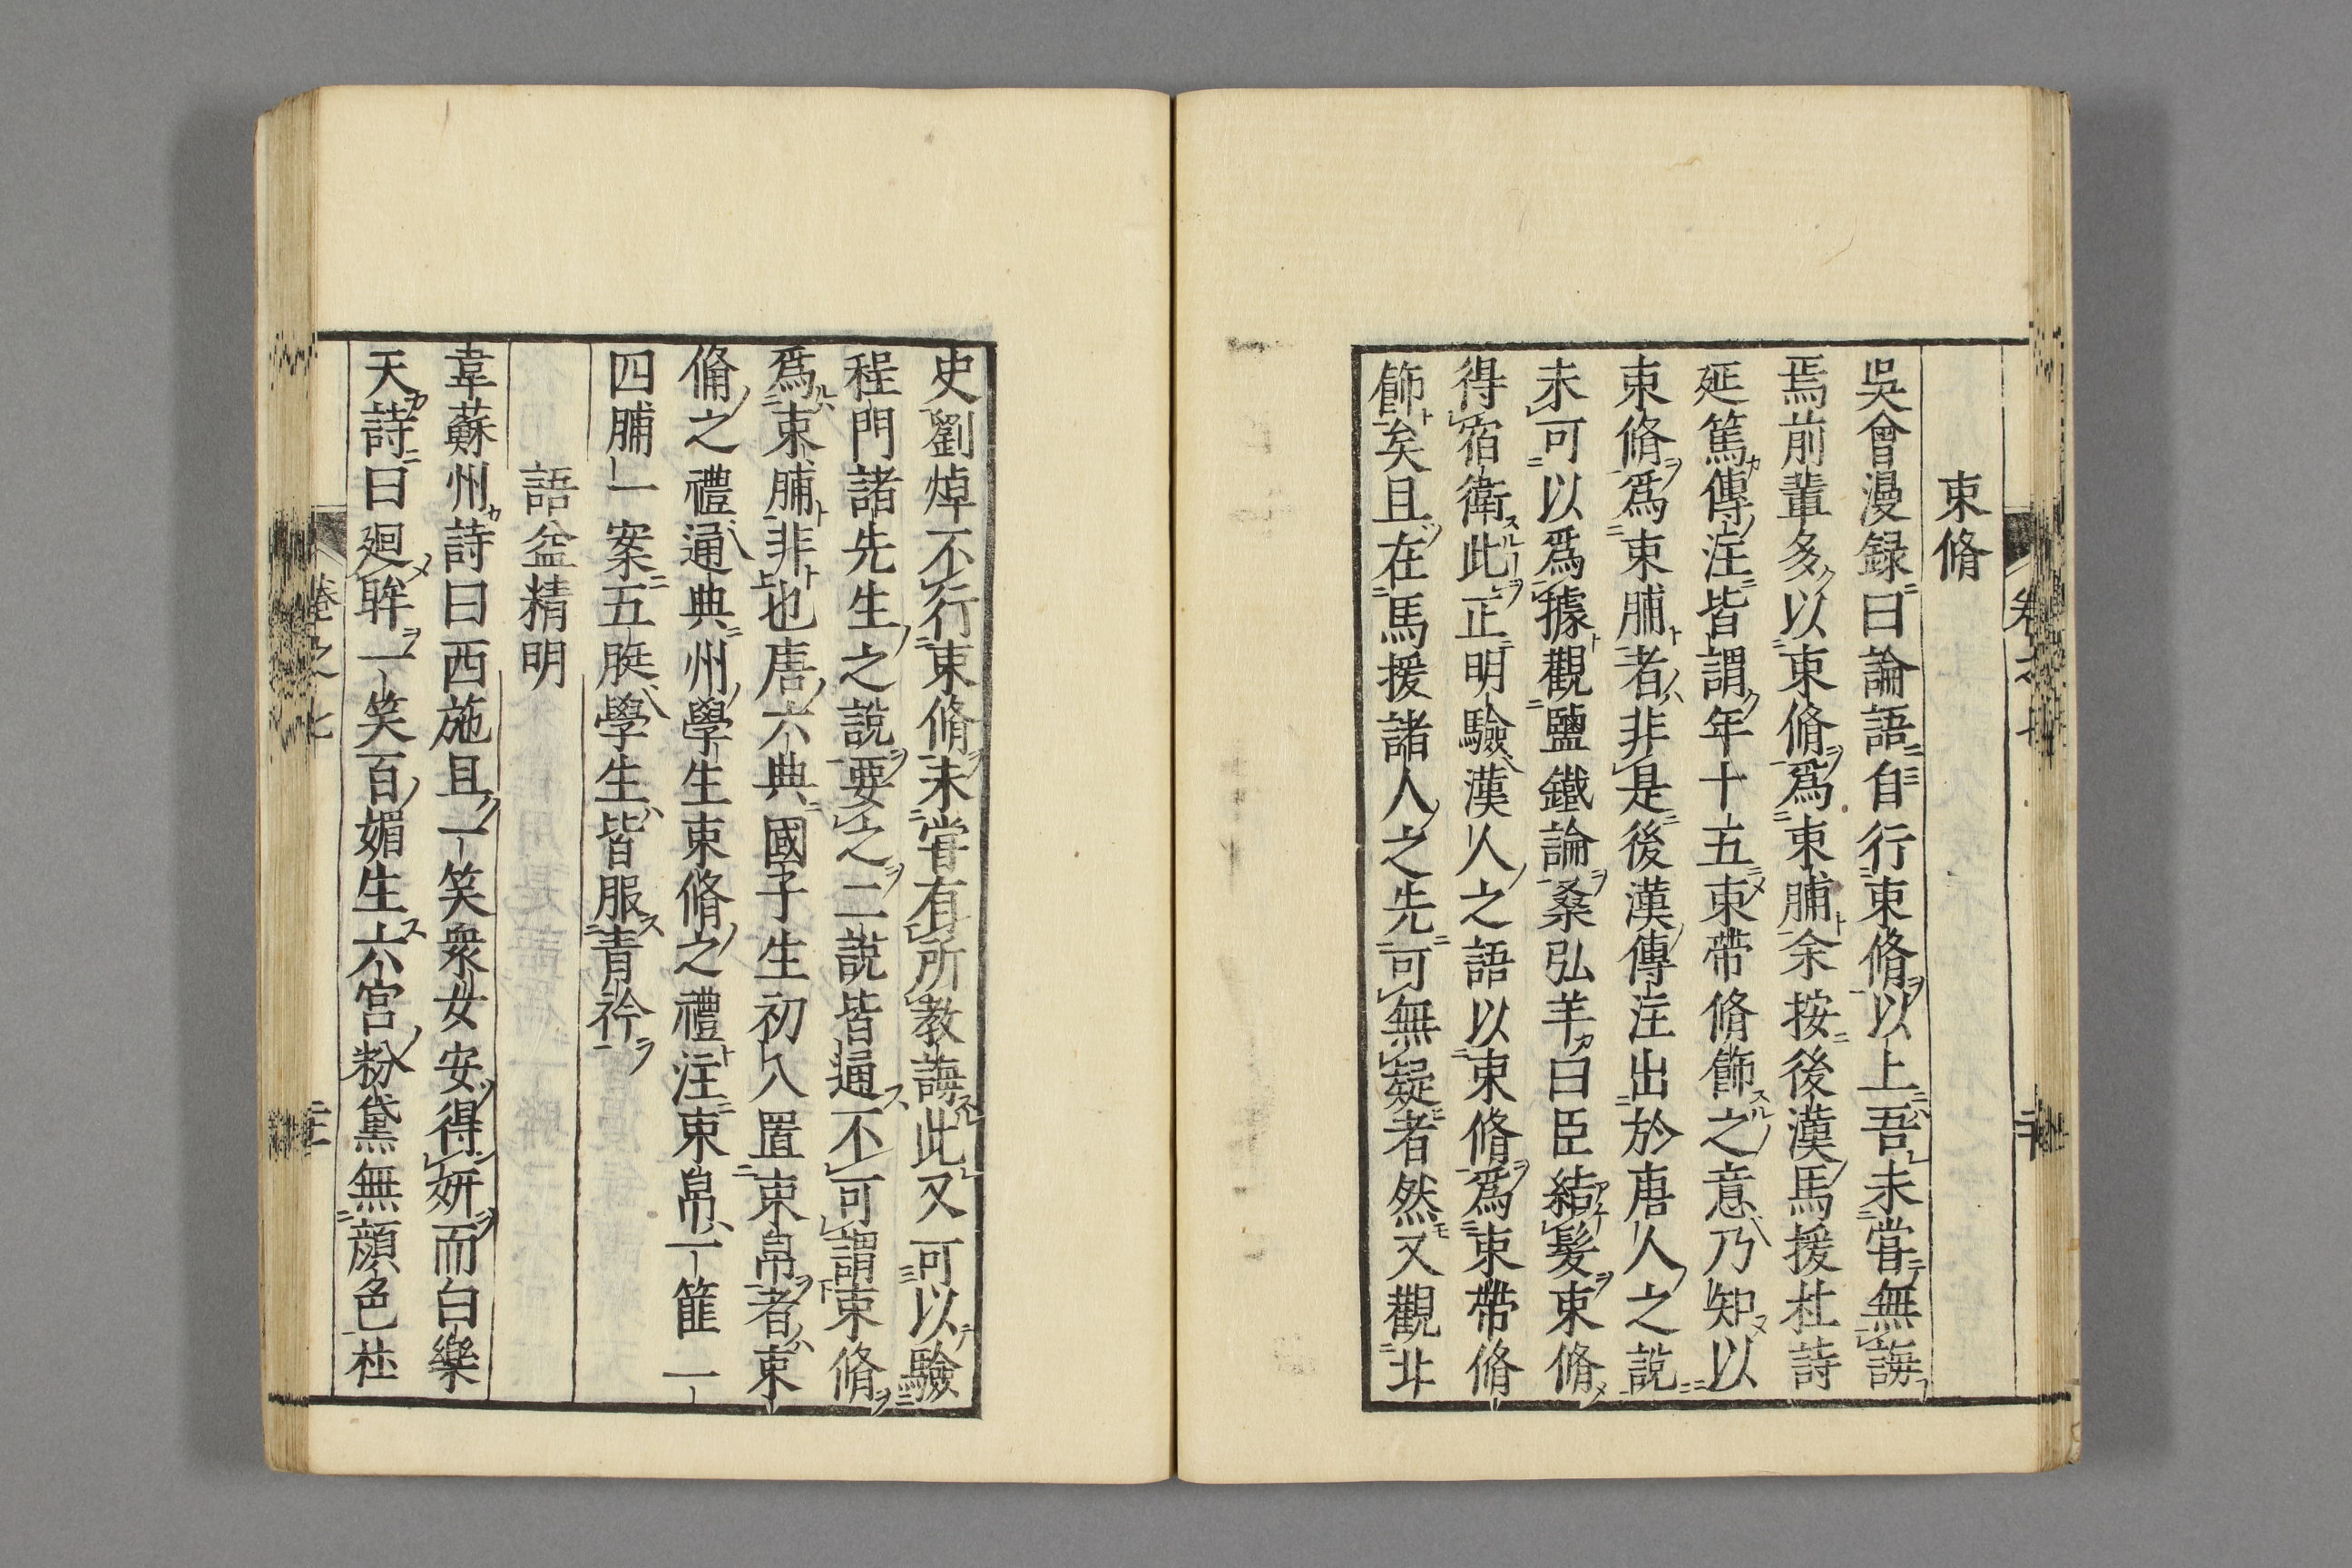 束脩
吳曾漫録曰論語自行束脩以上吾未嘗無誨
焉前輩多以束脩爲束脯余按後漢馬援杜詩
延篤傳注皆謂年十五束帶脩飾之意乃知以
束脩爲束脯者非是後漢傳注出於唐人之說
未可以爲據觀鹽鐵論桑弘羊曰臣結髮束脩
得宿衛此正明驗漢人之語以束脩爲束帶脩
飾矣且在馬援諸人之先可無疑者然又觀北
史劉焯不行束脩未嘗有所教誨此又可以驗
程門諸先生之説要之二説皆通不可謂束脩
爲束脯非也唐六典國子生初入置束帛者束
脩之禮通典州學生束脩之禮注束帛一篚一
四脯一案五脡學生皆服青衿
語益精明
韋蘇州詩曰西施且一笑衆女安得妍而白樂
天詩曰廻眸一笑百媚生六宮粉黛無顔色杜
卷之七